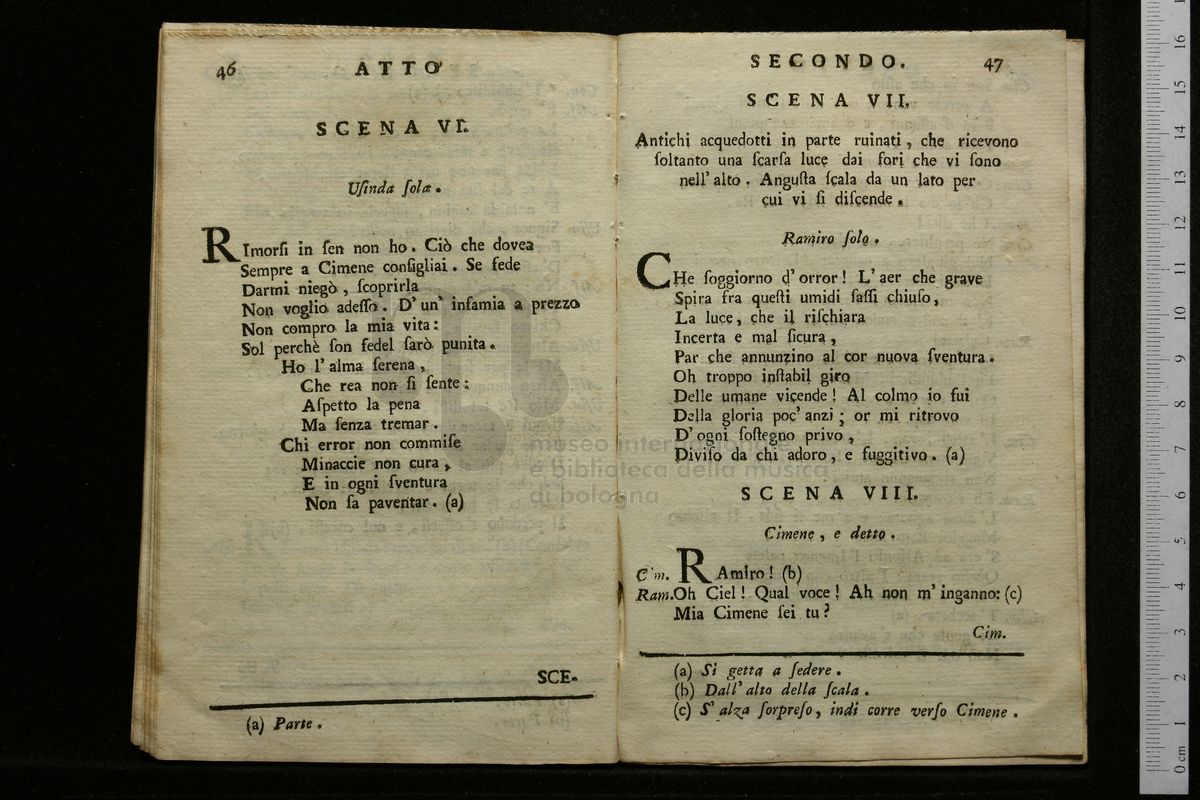 46 ATTO
SCENA VI.
Uſinda ſola.
RImorſi in ſen non ho. Ciò che dovea
Sempre a Cimene conſigliai. Se fede
Darmi niegò, ſcoprirla
Non voglio adeſſo. D' un' infamia a prezzo
Non compro la mia vita:
Sol perchè ſon fedel ſarò punita.
Ho l' alma ſerena,
Che rea non ſi ſente:
Aſpetto la pena
Ma ſenza tremar.
Chi error non commiſe
Minaccie non cura,
E in ogni ſventura
Non ſa paventar. (a)
SCE-
(a) Parte.
SECONDO. 47
SCENA VII.
Antichi acquedotti in parte ruinati, che ricevono
ſoltanto una ſcarſa luce dai fori che vi ſono
nell' alto. Anguſta ſcala da un lato per
cui vi ſi diſcende.
Ramiro ſolo.
CHe ſoggiorno d' orror! L' aer che grave
Spira fra queſti umidi ſaſſi chiuſo,
La luce, che il riſchiara
Incerta e mal ſicura,
Par che annunzino al cor nuova ſventura.
Oh troppo inſtabil giro
Delle umane vicende! Al colmo io fui
Della gloria poc' anzi; or mi ritrovo
D' ogni ſoſtegno privo,
Diviſo da chi adoro, e fuggitivo. (a)
SCENA VIII.
Cimene, e detto.
Cim. RAmiro! (b)
Ram. Oh Ciel! Qual voce! Ah non m' inganno: (c)
Mia Cimene ſei tu?
Cim.
(a) Si getta a ſedere.
(b) Dall' alto della ſcala.
(c) S' alza ſorpreſo, indi corre verſo Cimene.
museo internazionale
e biblioteca della musica
di bologna
0 cm 1 2 3 4 5 6 7 8 9 10 11 12 13 14 15 16